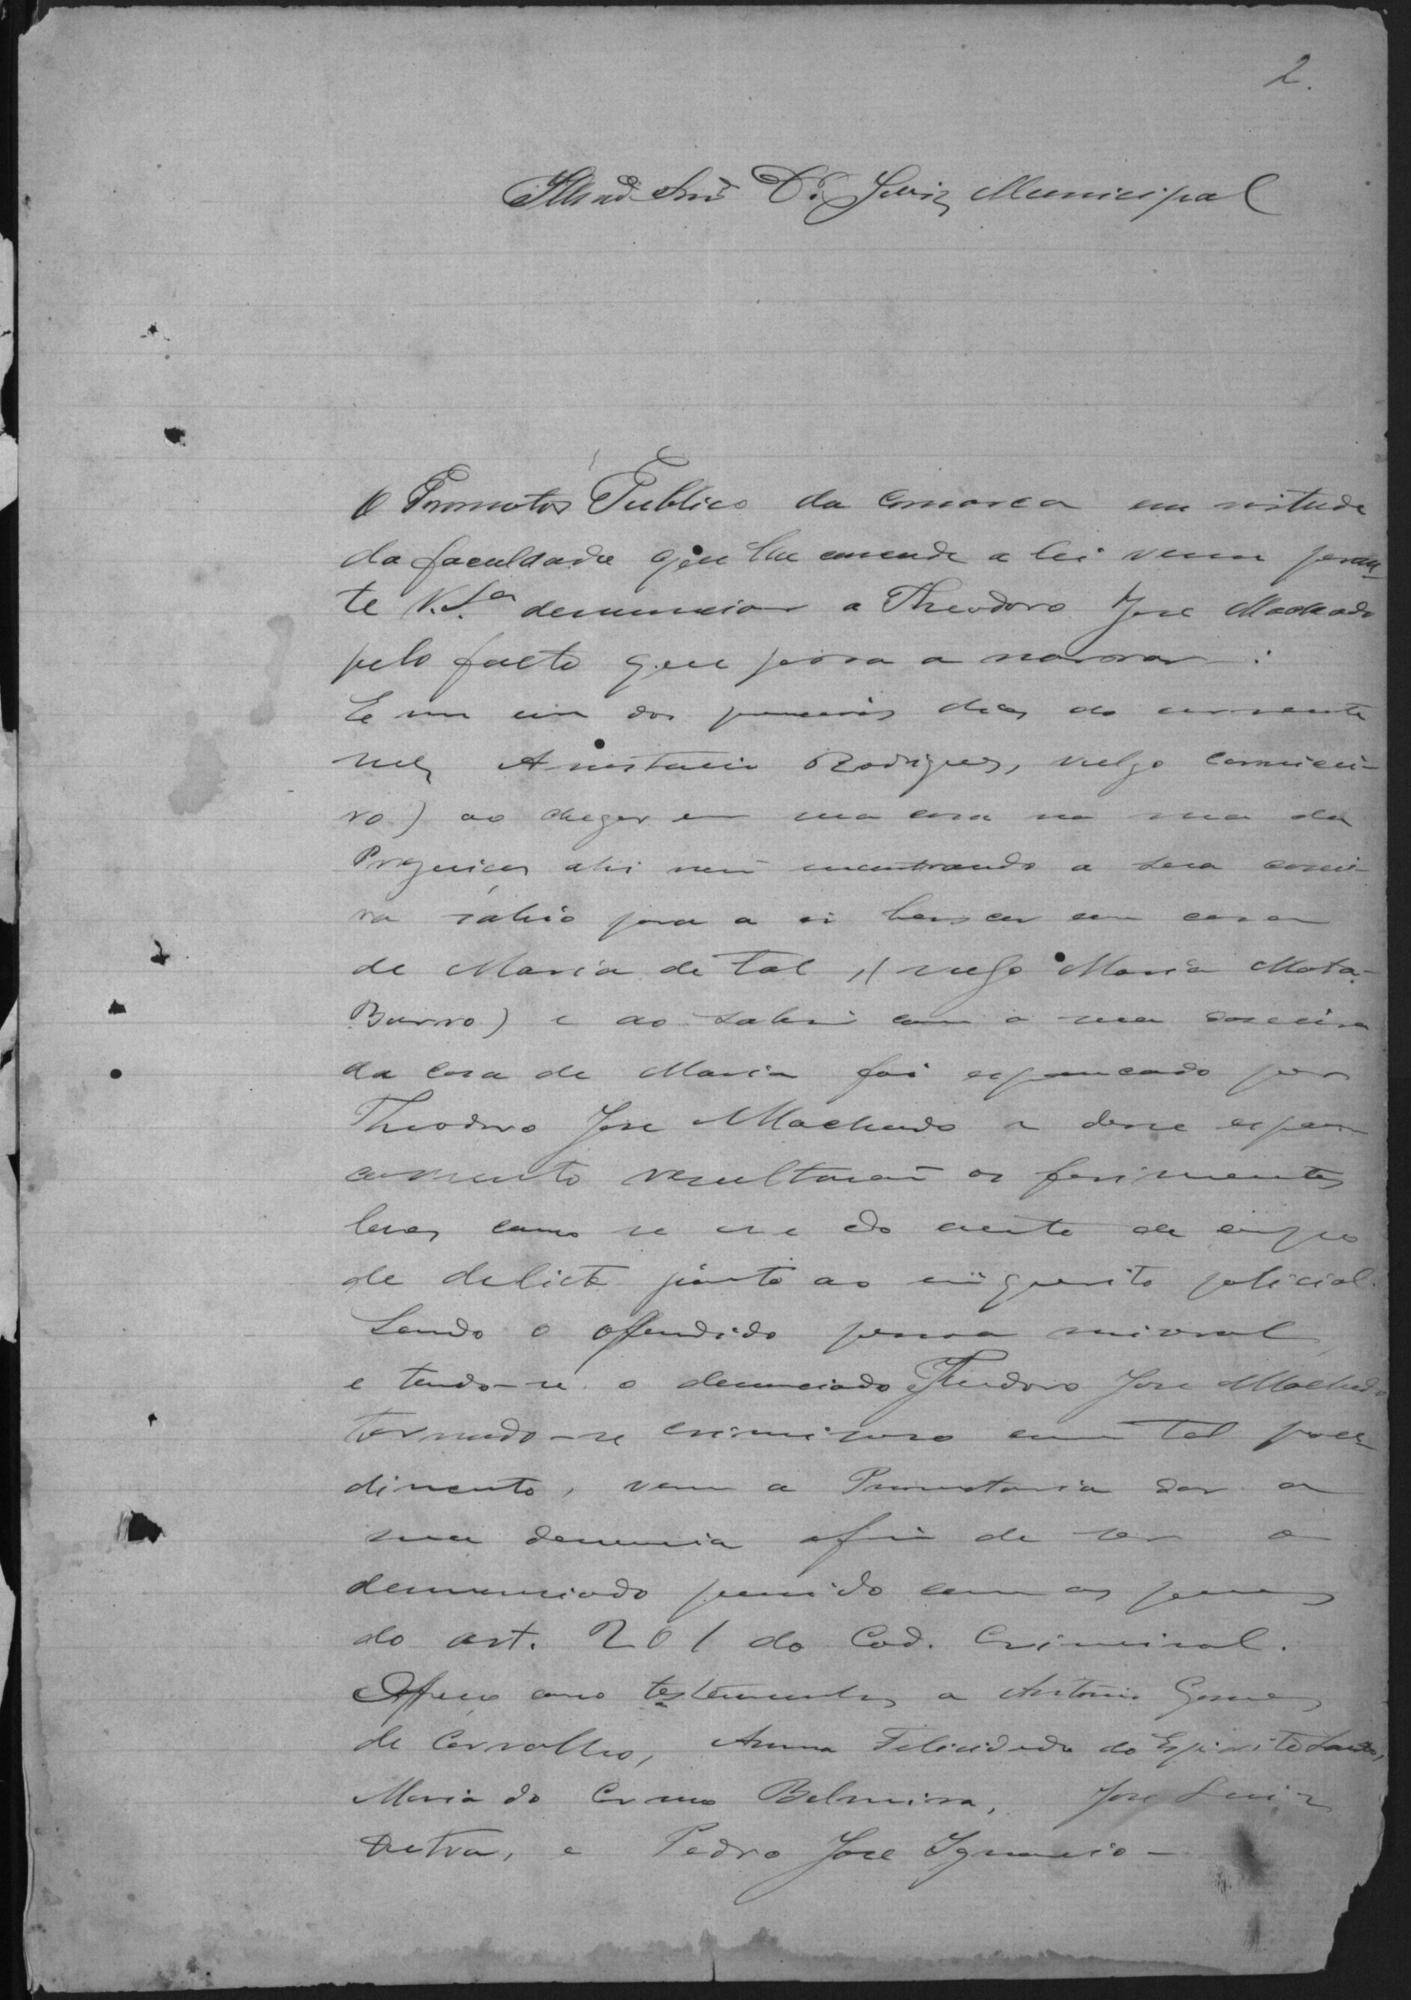 2.
Illmo Snr Dr. Juiz Municipal
O Promotor Publico da Comarca em virtude
da faculdade que lhe concede a lei vem peran-
te V. Sª denunciar a Theodoro Jose Machado
pelo facto que passa a narrar:
Em um dos primeiros dias do corrente
mez Anastacio Rodrigues, vulgo
ro) ao chegar em sua casa na rua da
Preguiça ahi não encontrando a sua
ra sahio para a ir buscar em casa
de Maria de tal, (vulgo Maria Mata-
Burro) e ao sahir com a sua
da casa de Maria foi espancado por
Theodoro Jose Machado e desse espan
camento resultarão os ferimentos
leves como se vê do auto de corpo
de delicto junto ao inquerito policial.
Sendo o offendido pessoa miseravel
e tendo-se o denunciado Theodoro Jose Machado
tornado-se criminoso com tal proce-
dimento, vem a Promotoria dar a
sua denuncia afim de ser o
denunciado punido com as penas
do art. 201 do Cod. Criminal.
Offereço como testemunhas a Antonio Gomes
de Carvalho, Anna Felicidade do Espirito Santo,
Maria do Carmo Belmira, Jose Luiz
Dutra, e Pedro Jose Ignacio -